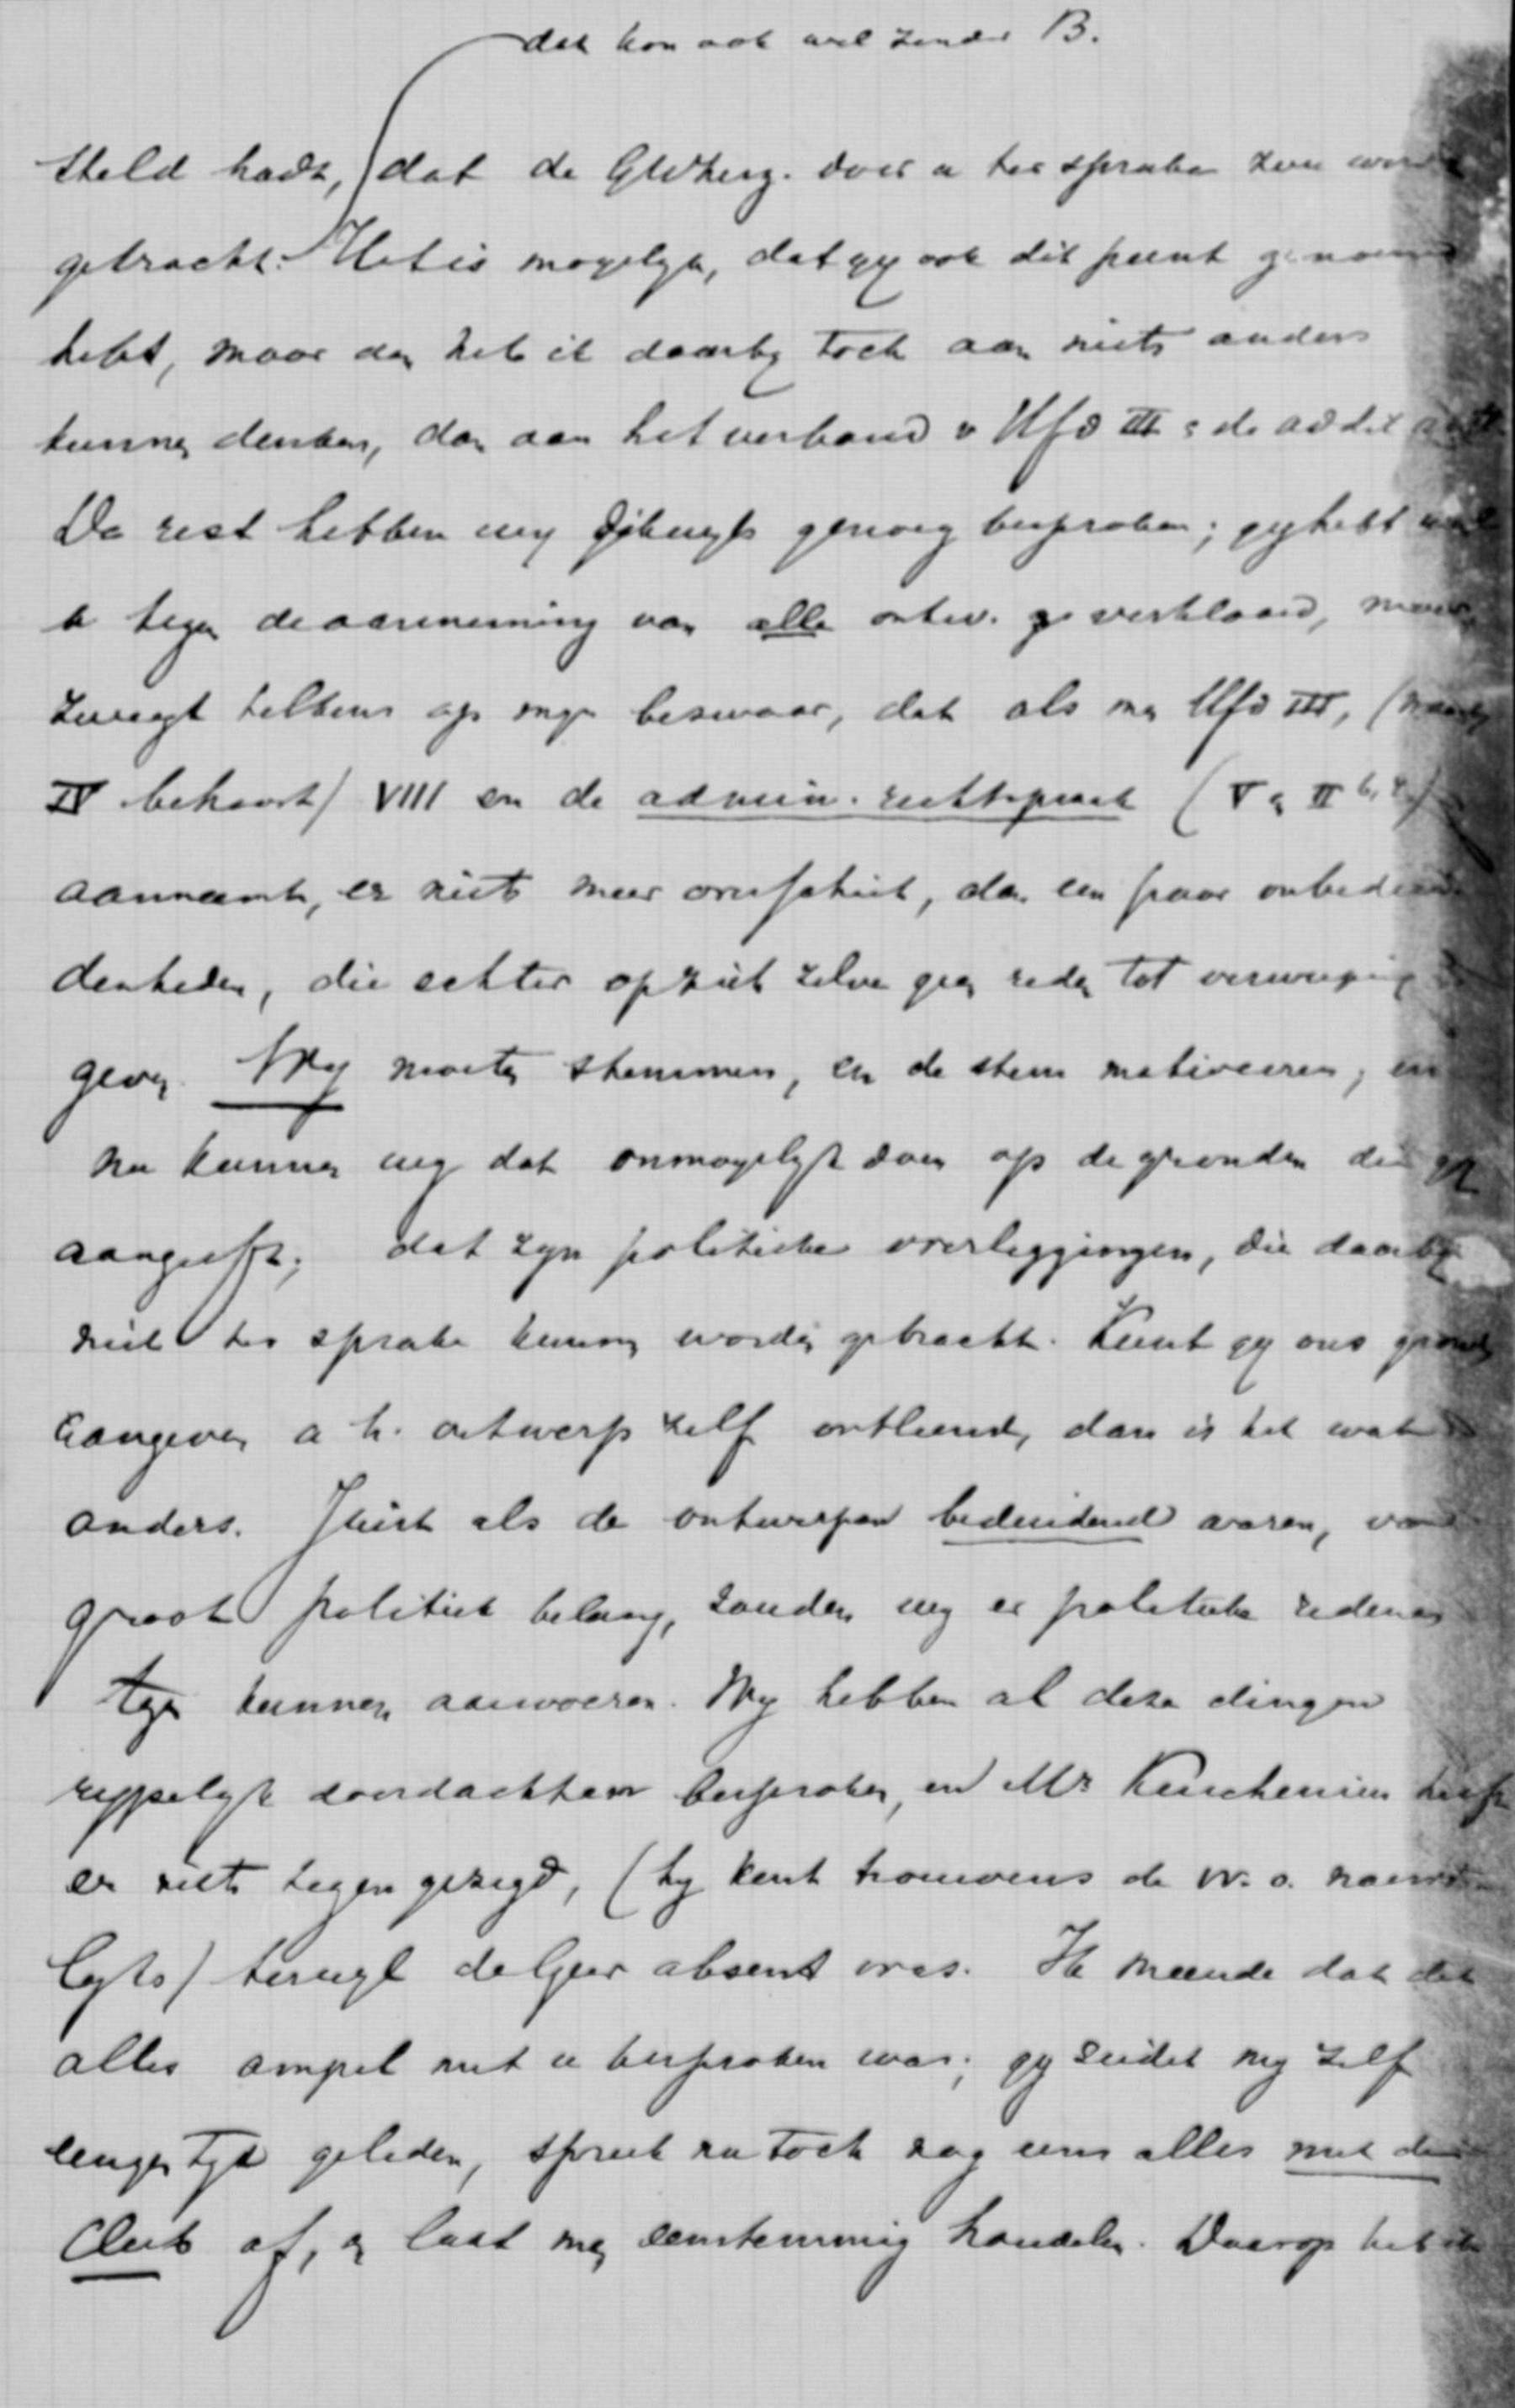 dat kon ook wel zonder B.
steld hadt, dat de Gldherz. door u ter sprake zou
gebracht. Het is mogelyk, dat gy ook dit punt
hebt, maar dan heb ik daarby toch aan niets anders
kunnen denken, dan aan het verband v Hfd III & de addit
De rest hebben wy dikwyls genoeg besproken; gy hebt
u tegen de aanneming van alle ontw. verklaard, maar
zweegt telkens op myn bezwaar, dat als men Hfd III, (waarby
IV behoort) VIII en de admin. rechtspraak (V & II
aanneemt, er niets meer overschiet, dan een paar onbedui
denheden, die echter op zich zelve geen reden tot verwerping
geven. Wy moeten stemmen, en de stem motiveeren; en
nu kunnen wy dat onmogelyk doen op de gronden die gy
aangeeft; dat zyn politieke overleggingen, die daarby
niet ter sprake kunnen worden gebracht. Kunt gy ons gronden
aangeven a h. ontwerp zelf ontleend, dan is het wat
anders. Juist als de ontwerpen beduidend waren, van
groot politiek belang, zouden wy er politieke redenen
tegen kunnen aanvoeren. Wy hebben al deze dingen
rypelyk doordacht en besproken, en Mr Keuchenius heeft
er niets tegen gezegd, (hy kent trouwens de
terwyl de Geer absent was. Ik meende dat dit
alles ampel met u besproken was; gy zeidet my zelf
eenigen tyd geleden, spreek nu toch nog eens alles met de
Club af, en laat men eenstemmig handelen. Daarop heb ik